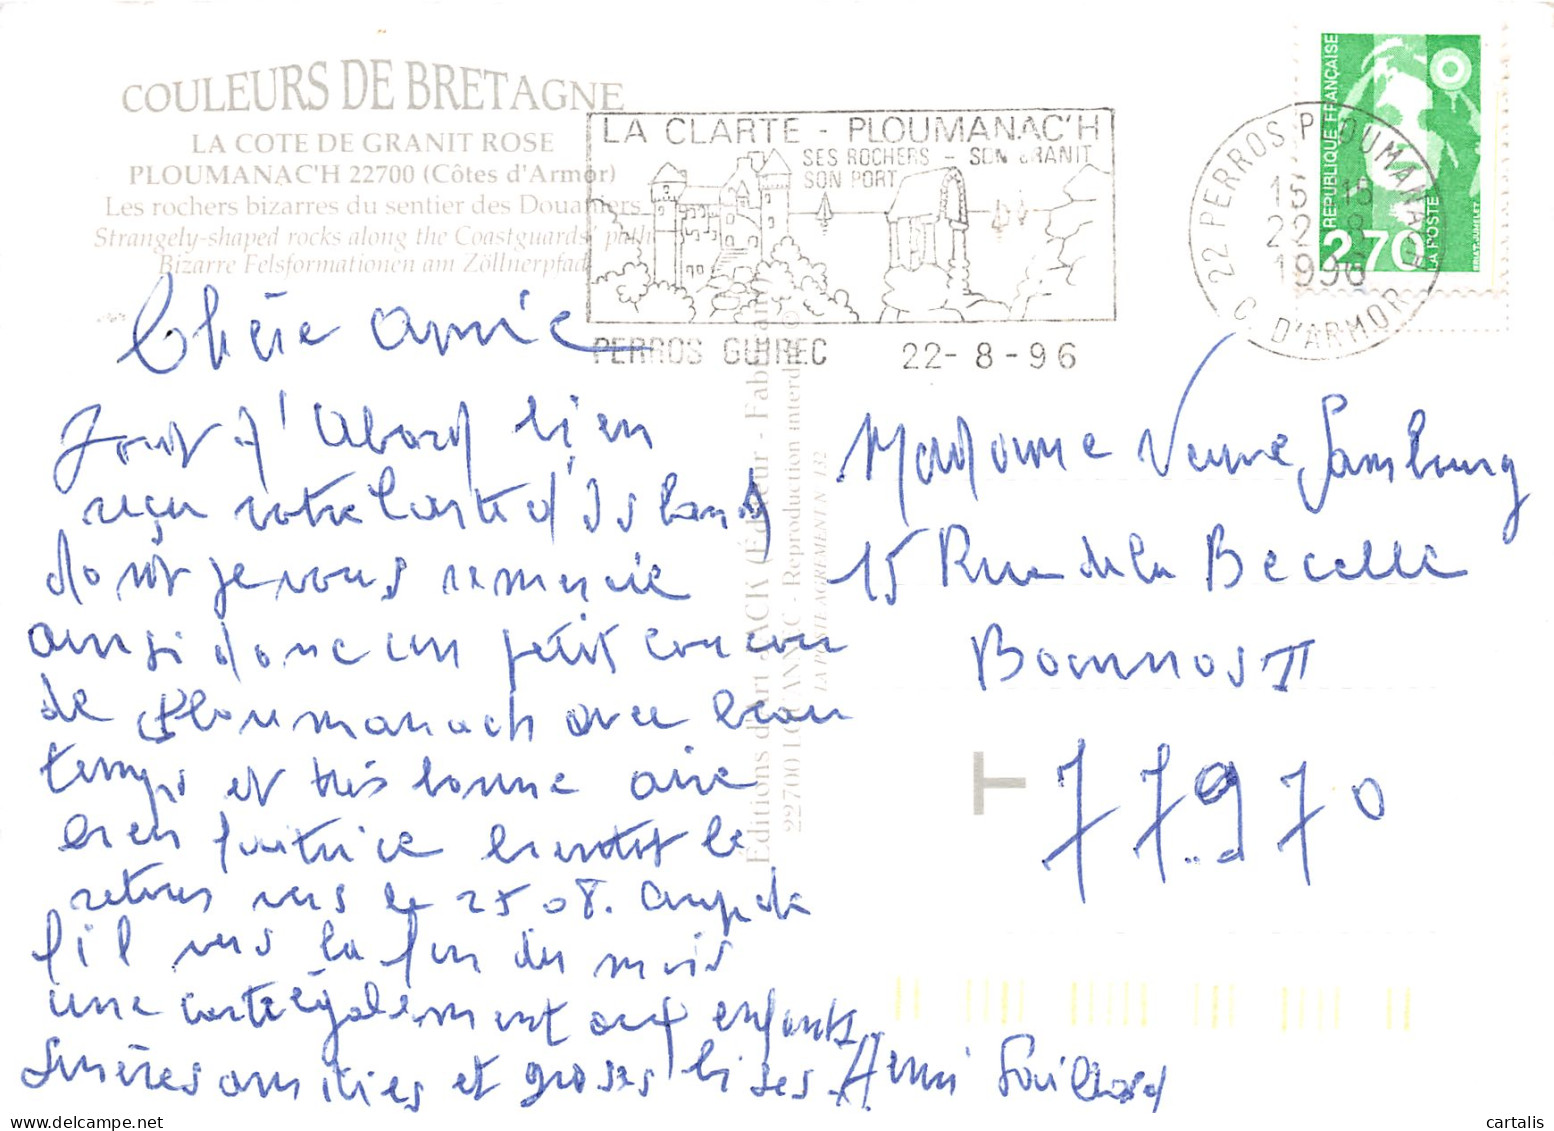 COULEURS DE BRETAGNE
LA COTE DE GRANIT ROSE
PLOUMANAC'H 22700 (Côtes d'Armor)
Les rochers bizarres du sentier des Douaniers
Strangely-shaped rocks along the Coastguards' path
Bizarre Felsformationen am Zöllnerpfad
LA CLARTE - PLOUMANAC'H
SES ROCHERS - SON GRANIT
SON PORT
PERROS GUIREC 22-8-96
REPUBLIQUE FRANÇAISE
2,70
LA POSTE
22 PERROS PLOUMANACH
15 15
22 8
1996
C. D'ARMOR
Chère amie
Tout d'abord bien
reçu votre carte d'Island
dont je vous remercie
ainsi donc un petit coucou
de Ploumanach avec beau
temps et très bonne aire
bien bientôt le
retour vers le 25 08.
fil vers la fin du mois
une carte également aux enfants
Sincères amitiés et grosses bises. Henri
Madame Veuve
15 Rue de la Becelle
77970
T
Éditions d'Art JACK (Éditeur - Fabricant)
22700 LOUANNEC - Reproduction interdite ©
LA POSTE AGREMENT N° 132
cartalis